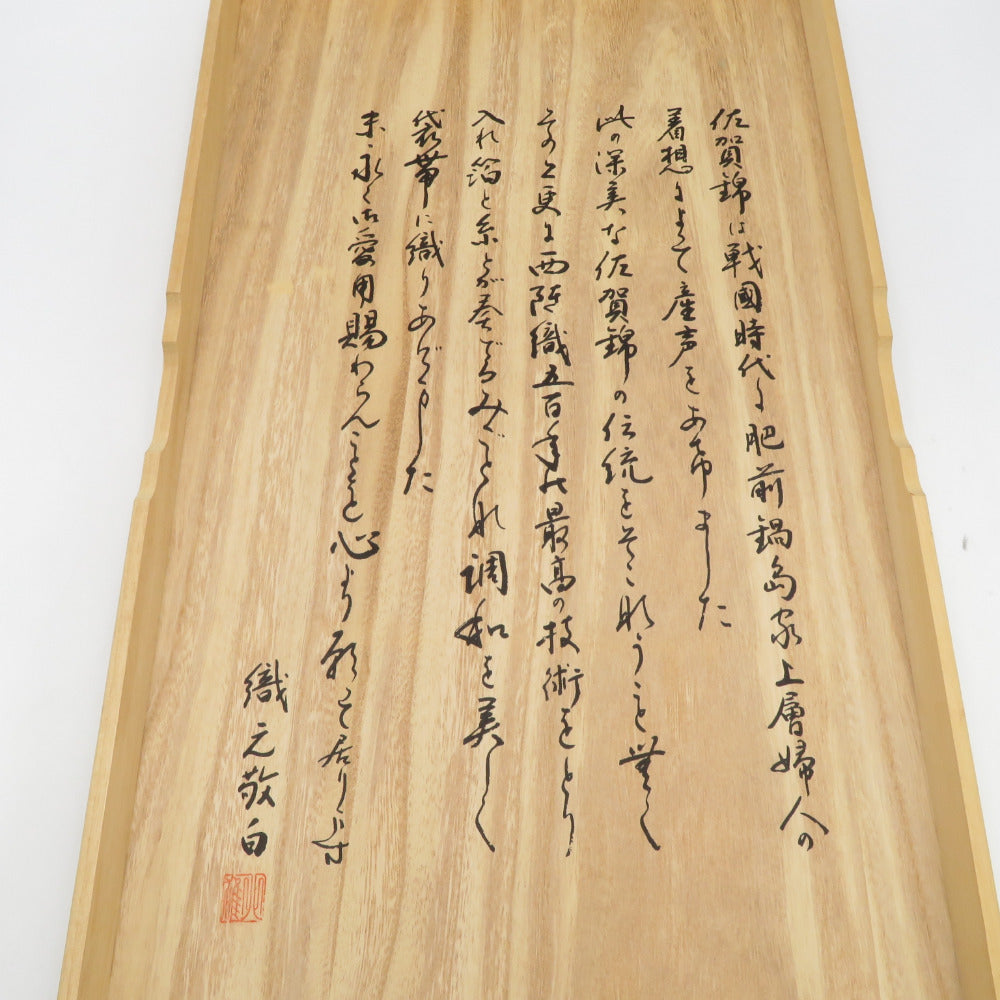 佐賀錦は戦國時代に肥前鍋島家上層婦人の
着想によって産声をあげました
此の深美な佐賀錦の伝統をそこ那うこと無く
その上更に西陣織五百年の最高の技術をとり
入れ箔と糸とが奏でるみごとな調和を美しく
袋帯に織りあげました
末永く御愛用賜わらんことを心より願て居ります
織元敬白